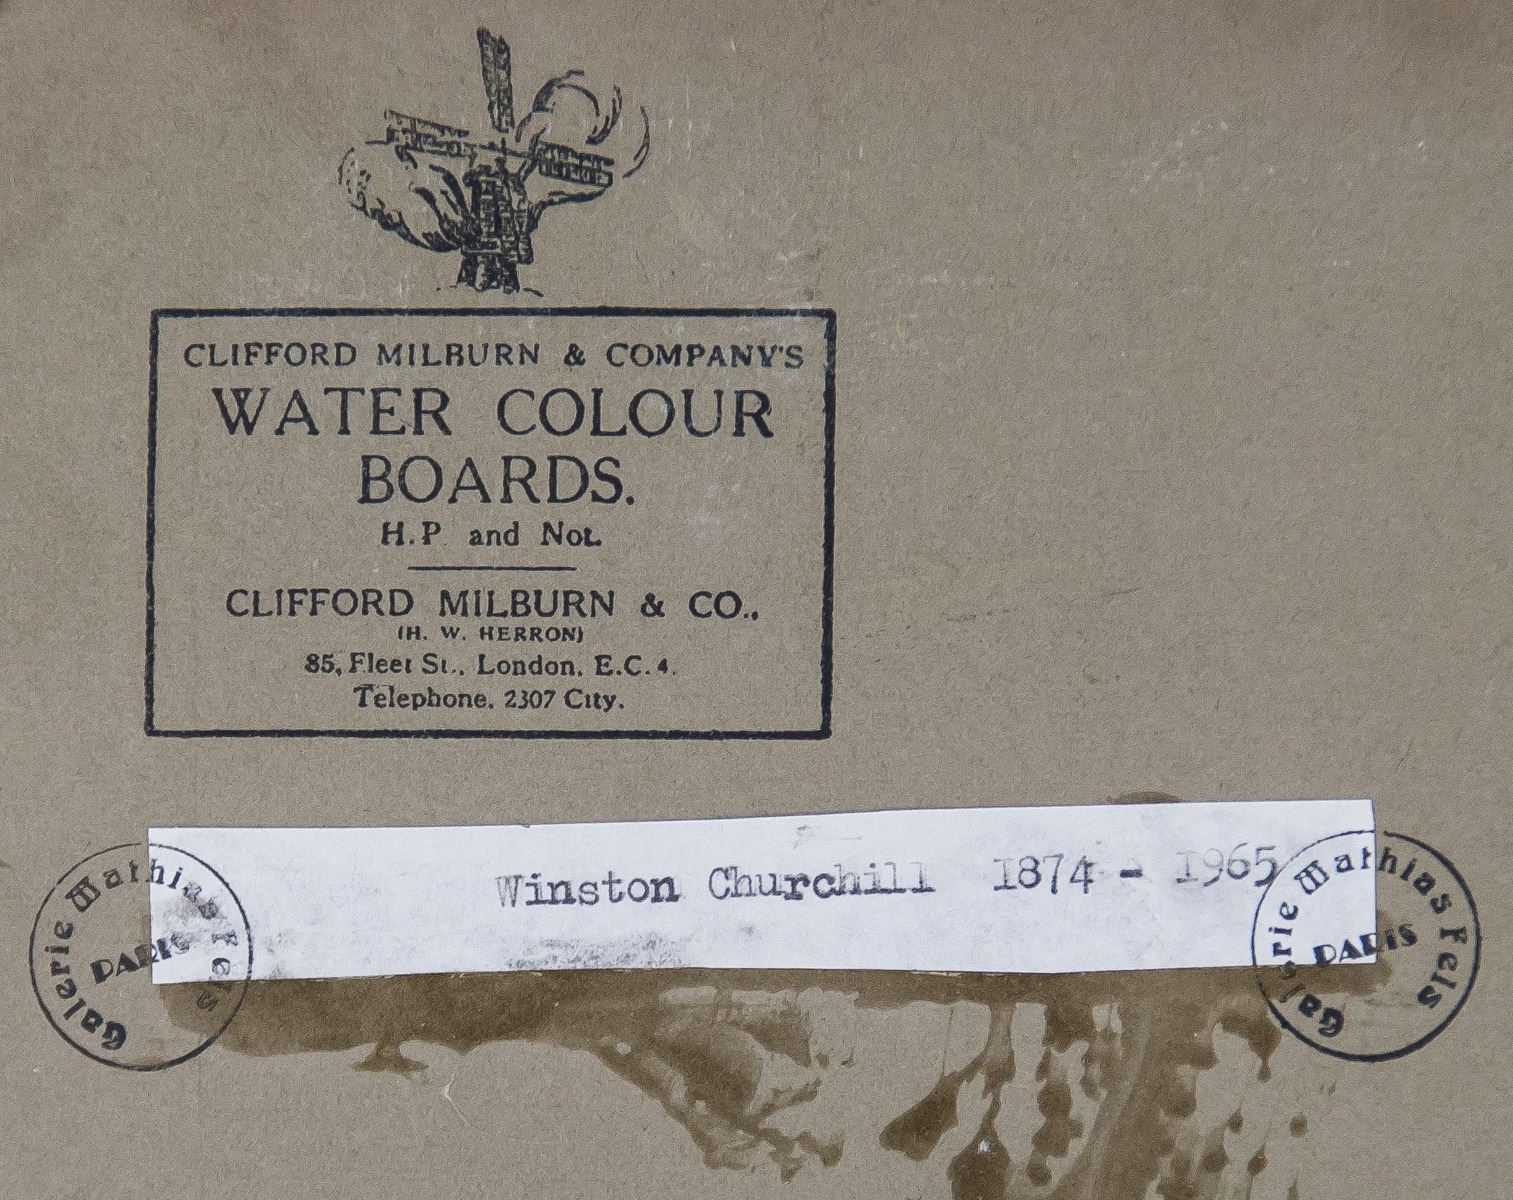 CLIFFORD MILBURN & COMPANY'S
WATER COLOUR
BOARDS.
H.P. and Not.
CLIFFORD MILBURN & CO.,
(H. W. HERRON)
85, Fleet St., London, E.C.4.
Telephone. 2307 City.
Winston Churchill 1874 - 1965
Galerie Mathias Fels
PARIS
Galerie Mathias Fels
PARIS